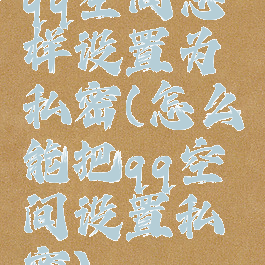 qq空间怎
样设置为
私密(怎么
能把qq空
间设置私
密)